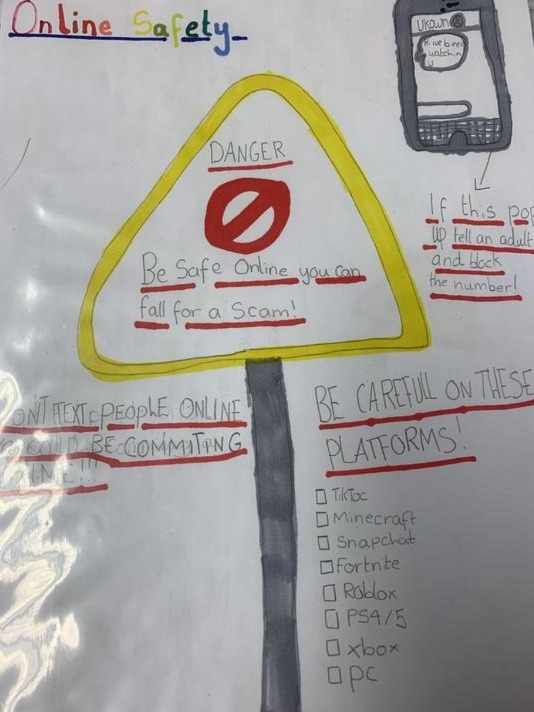 Online Safety
UKOWN
watchin
u
DANGER
Be Safe Online you can
fall for a Scam!
If this pop
up tell an adult
and block
the number!
ON'T TEXT PEOPLE ONLINE
COULD BE COMMITING
BE CAREFULL ON THESE
PLATFORMS!
TikToc
Minecraft
Snapchat
Fortnite
Roblox
PS4/5
xbox
PC